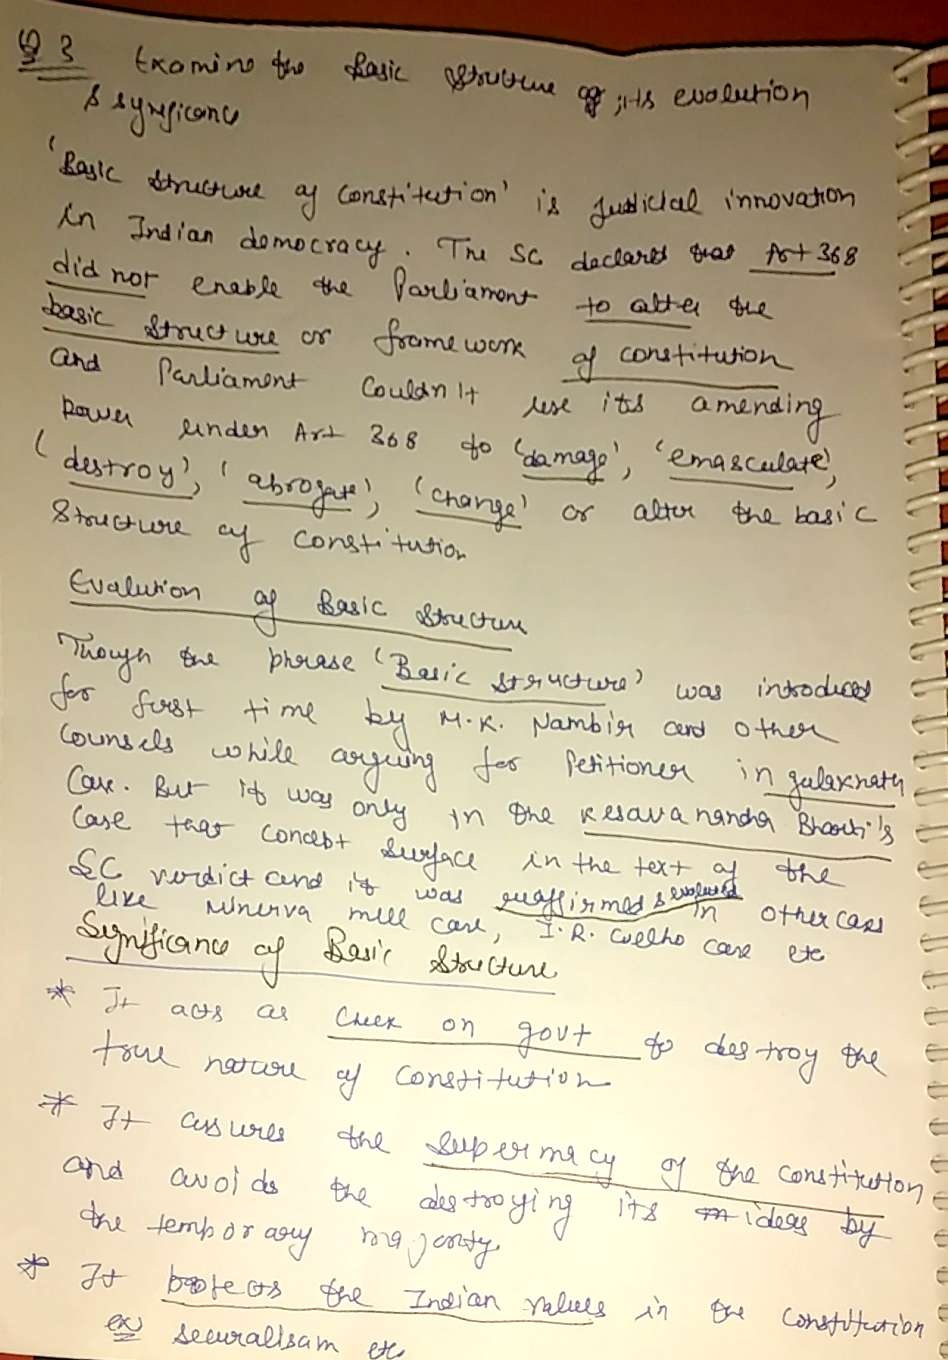 Q 3 Examine the Basic Structure of ; its evolution
& significance
'Basic Structure of Constitution' is judicial innovation
in Indian democracy. The SC declared that Art 368
did not enable the Parliament to alter the
basic structure or framework of constitution
and Parliament Couldn't use its amending
Power under Art 368 to 'damage', 'emasculate',
'destroy', 'abrogate', 'change' or alter the basic
Structure of Constitution
Evalution of Basic Structure
Though the phrase 'Basic Structure' was introduced
for first time by M.K. Nambir and other
Counsels while arguing for Petitioner in galaknath
Case. But it was only in the Kesavanandha Bharti's
Case that concept surface in the text of the
SC verdict and it was reaffirmed & evolved in other cases
like Minerva mill case, I.R. Cuelho case etc
Significance of Basic Structure
* It acts as Check on govt to destroy the
true nature of Constitution
* It assures the Supermacy of the Constitution
and avoids the destroying its ideas by
the temporary majority
* It protects the Indian values in the Constitution
ex securalisam etc